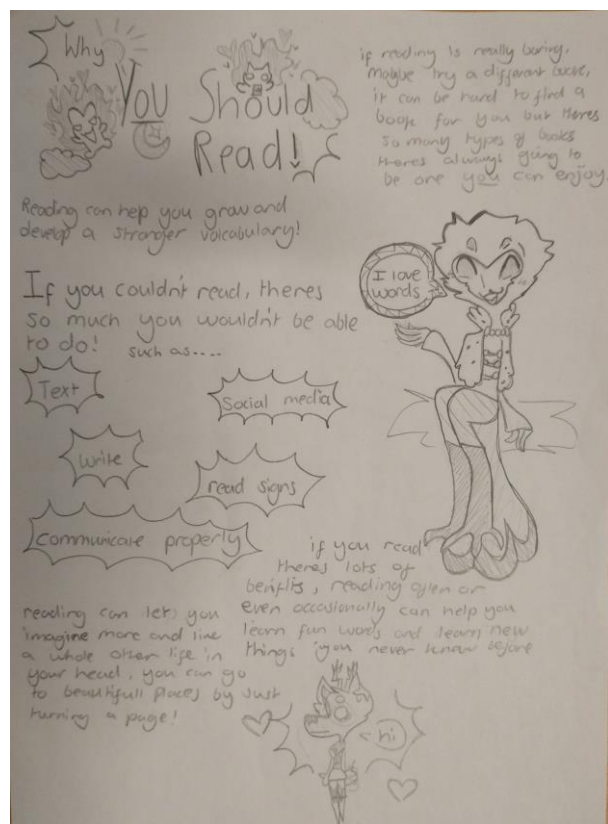 Why
You Should
Read!
if reading is really boring,
maybe try a different book,
it can be hard to find a
book for you but theres
so many types of books
theres always going to
be one you can enjoy.
Reading can help you grow and
develop a stronger voicabulary!
I love
words
If you couldn't read, theres
so much you wouldn't be able
to do! such as....
Text
Social media
write
read signs
communicate properly
if you read
theres lots of
benifits, reading often or
even occasionally can help you
learn fun words and learn new
things you never knew before
reading can let you
imagine more and live
a whole other life in
your head, you can go
to beautifull places by just
turning a page!
hi